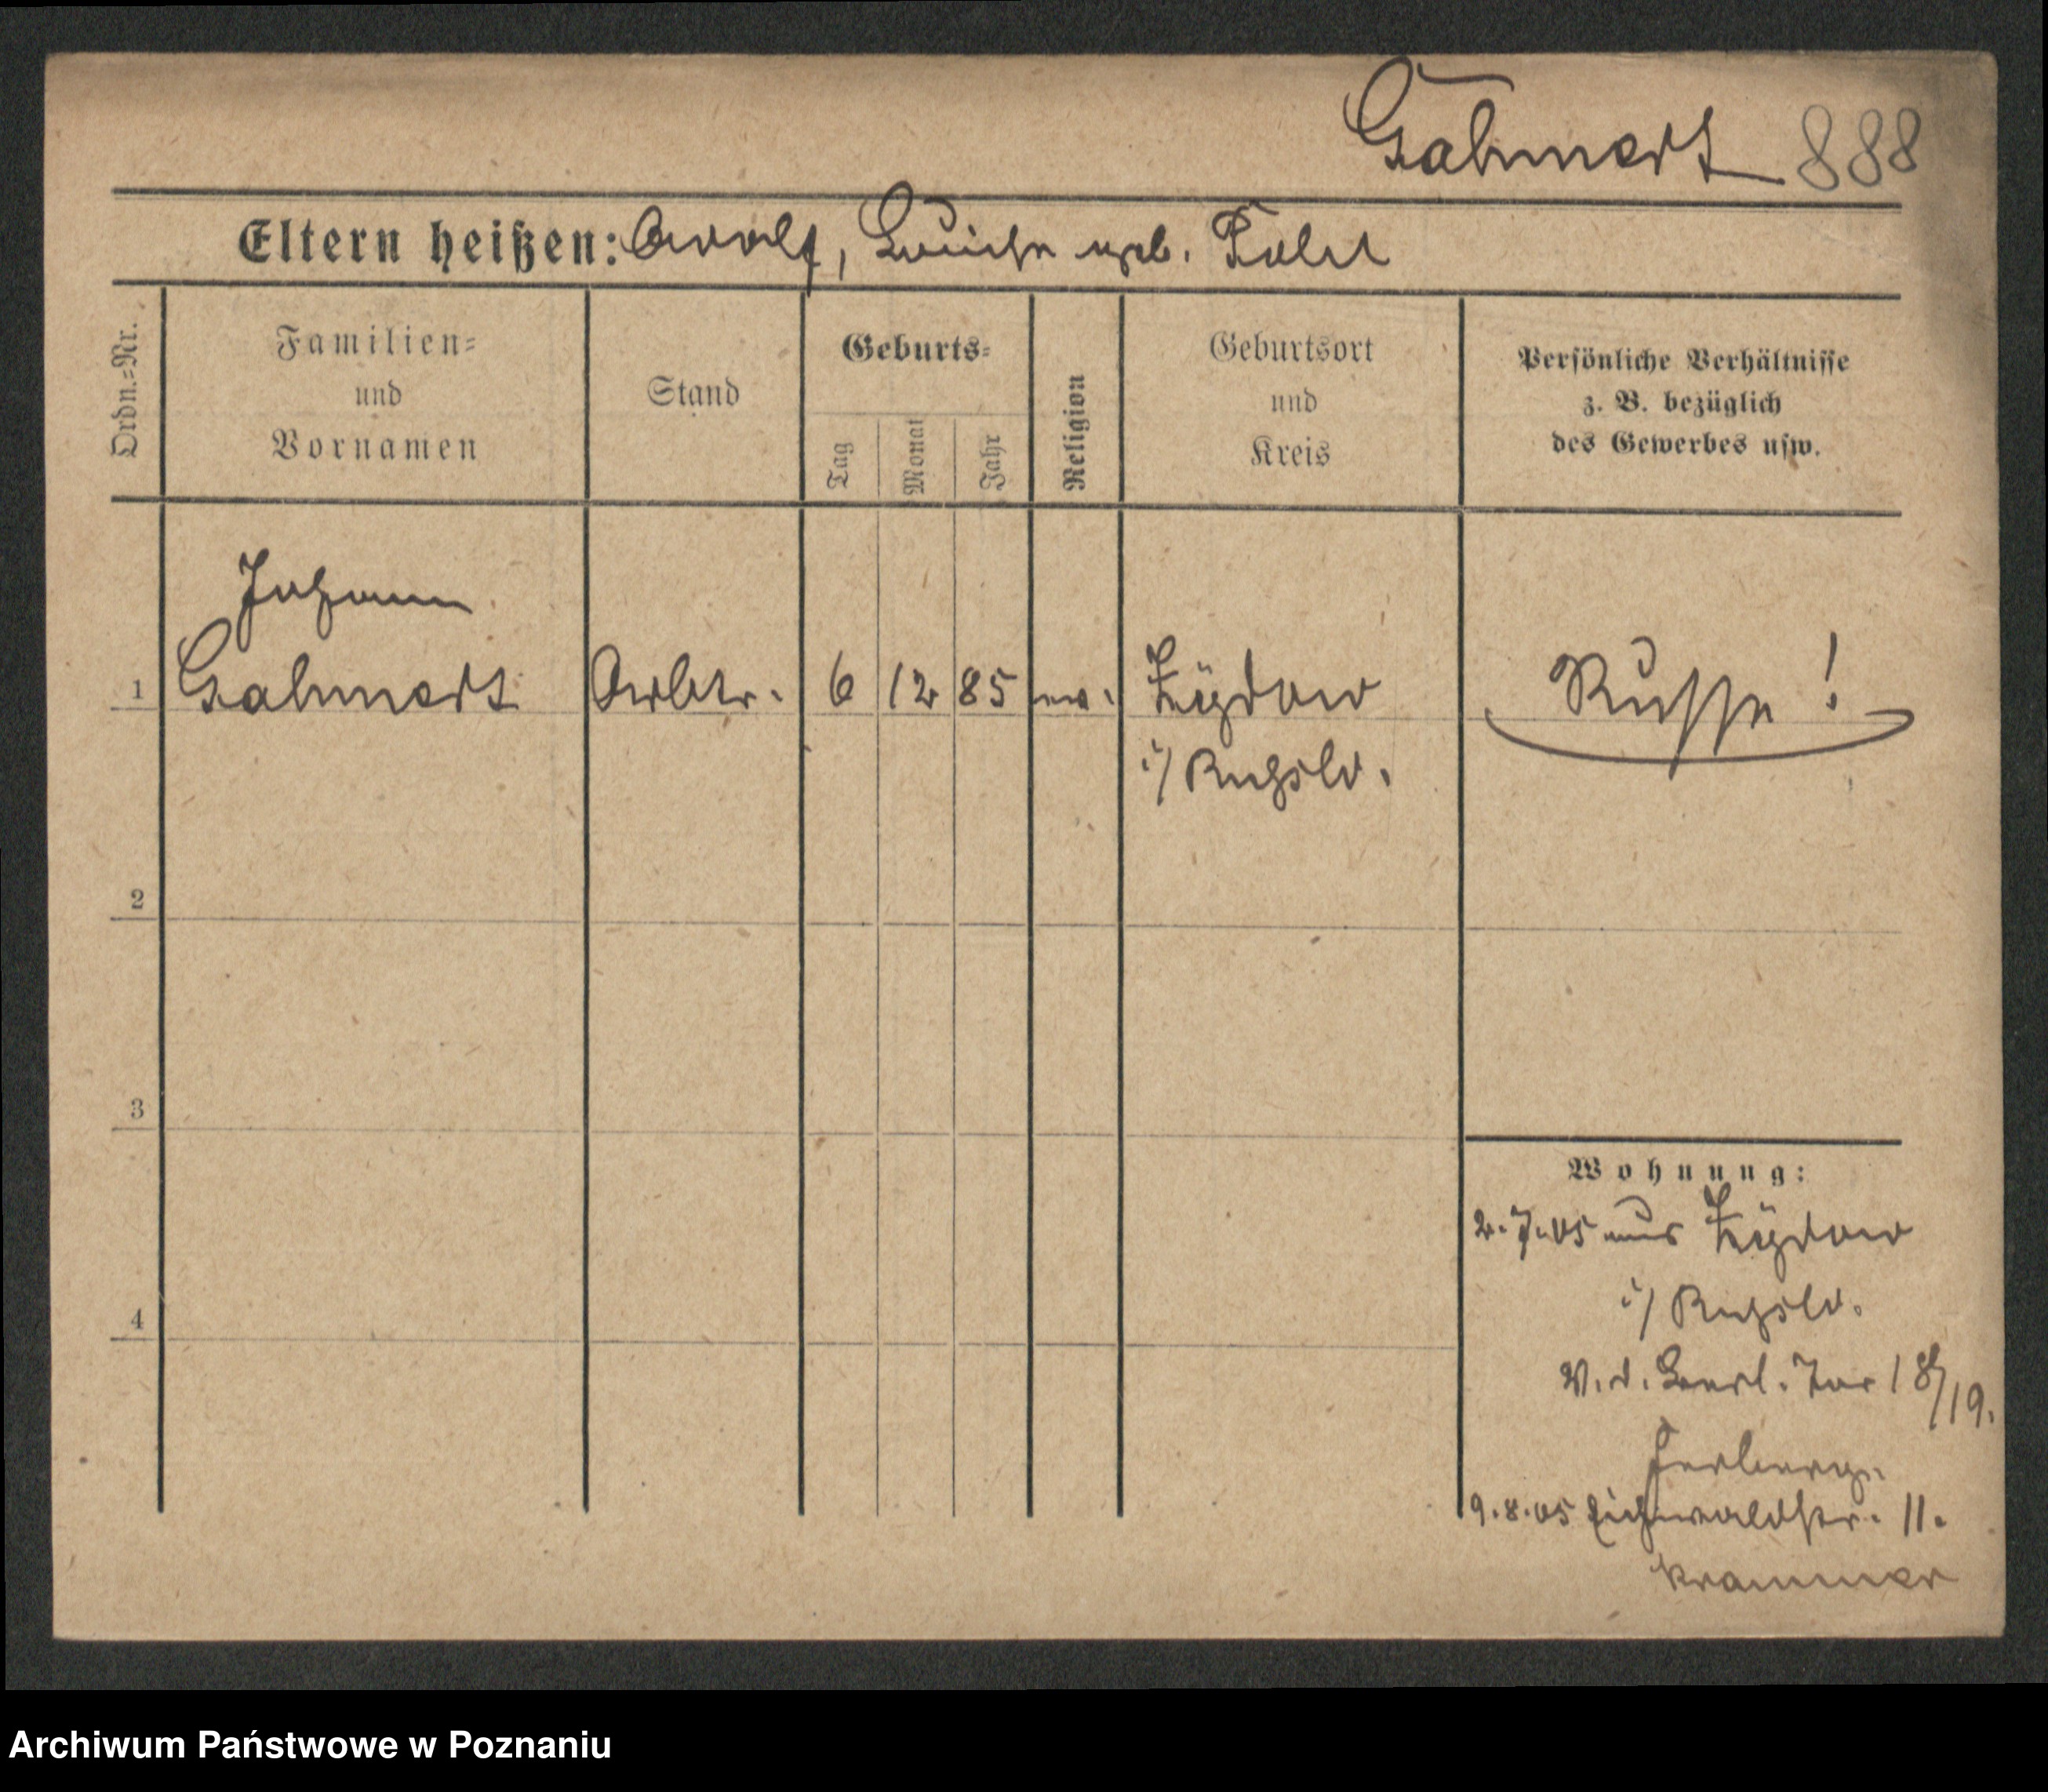 Gahmert 888
Eltern heißen: Adolf, Luise geb.
Ordn.=Nr.
Familien=
und
Vornamen
Stand
Geburts=
Tag
Monat
Jahr
Religion
Geburtsort
und
Kreis
Persönliche Verhältnisse
z. B. bezüglich
des Gewerbes usw.
Johann
1 Gahmert Arbtr. 6 12 85 ev. Zÿdow Russe!
i/ Rußld.
2
3
4
Wohnung:
2.7.05 aus Zÿdow
i/ Rußld.
V. d. Berl. Tor 18/19.
Herberg.
9.8.05 Eichwaldstr. 11.
Krammer
Archiwum Państwowe w Poznaniu